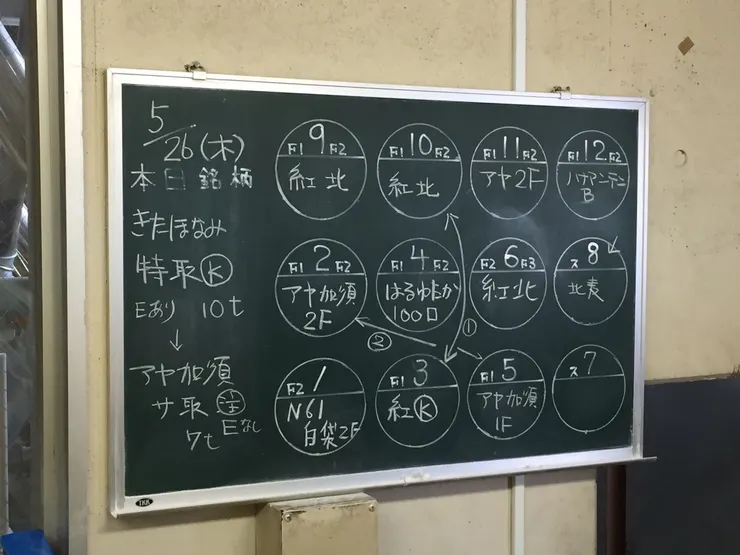 5/26(木)
本日銘柄
きたほなみ
特取Ⓚ
Eあり 10t
↓
アヤ加須
サ取
Eなし
7t
F1 9 F2
紅北
F1 10 F2
紅北
F1 11 F2
アヤ2F
F1 12 F2
ハナアンテン
B
F1 2 F2
アヤ加須
2F
F1 4 F2
はるゆたか
100口
F2 6 F3
紅北
ス 8
北麦
①
②
F2 1
N61
白袋2F
F1 3
紅Ⓚ
F1 5
アヤ加須
1F
ス 7
TKK